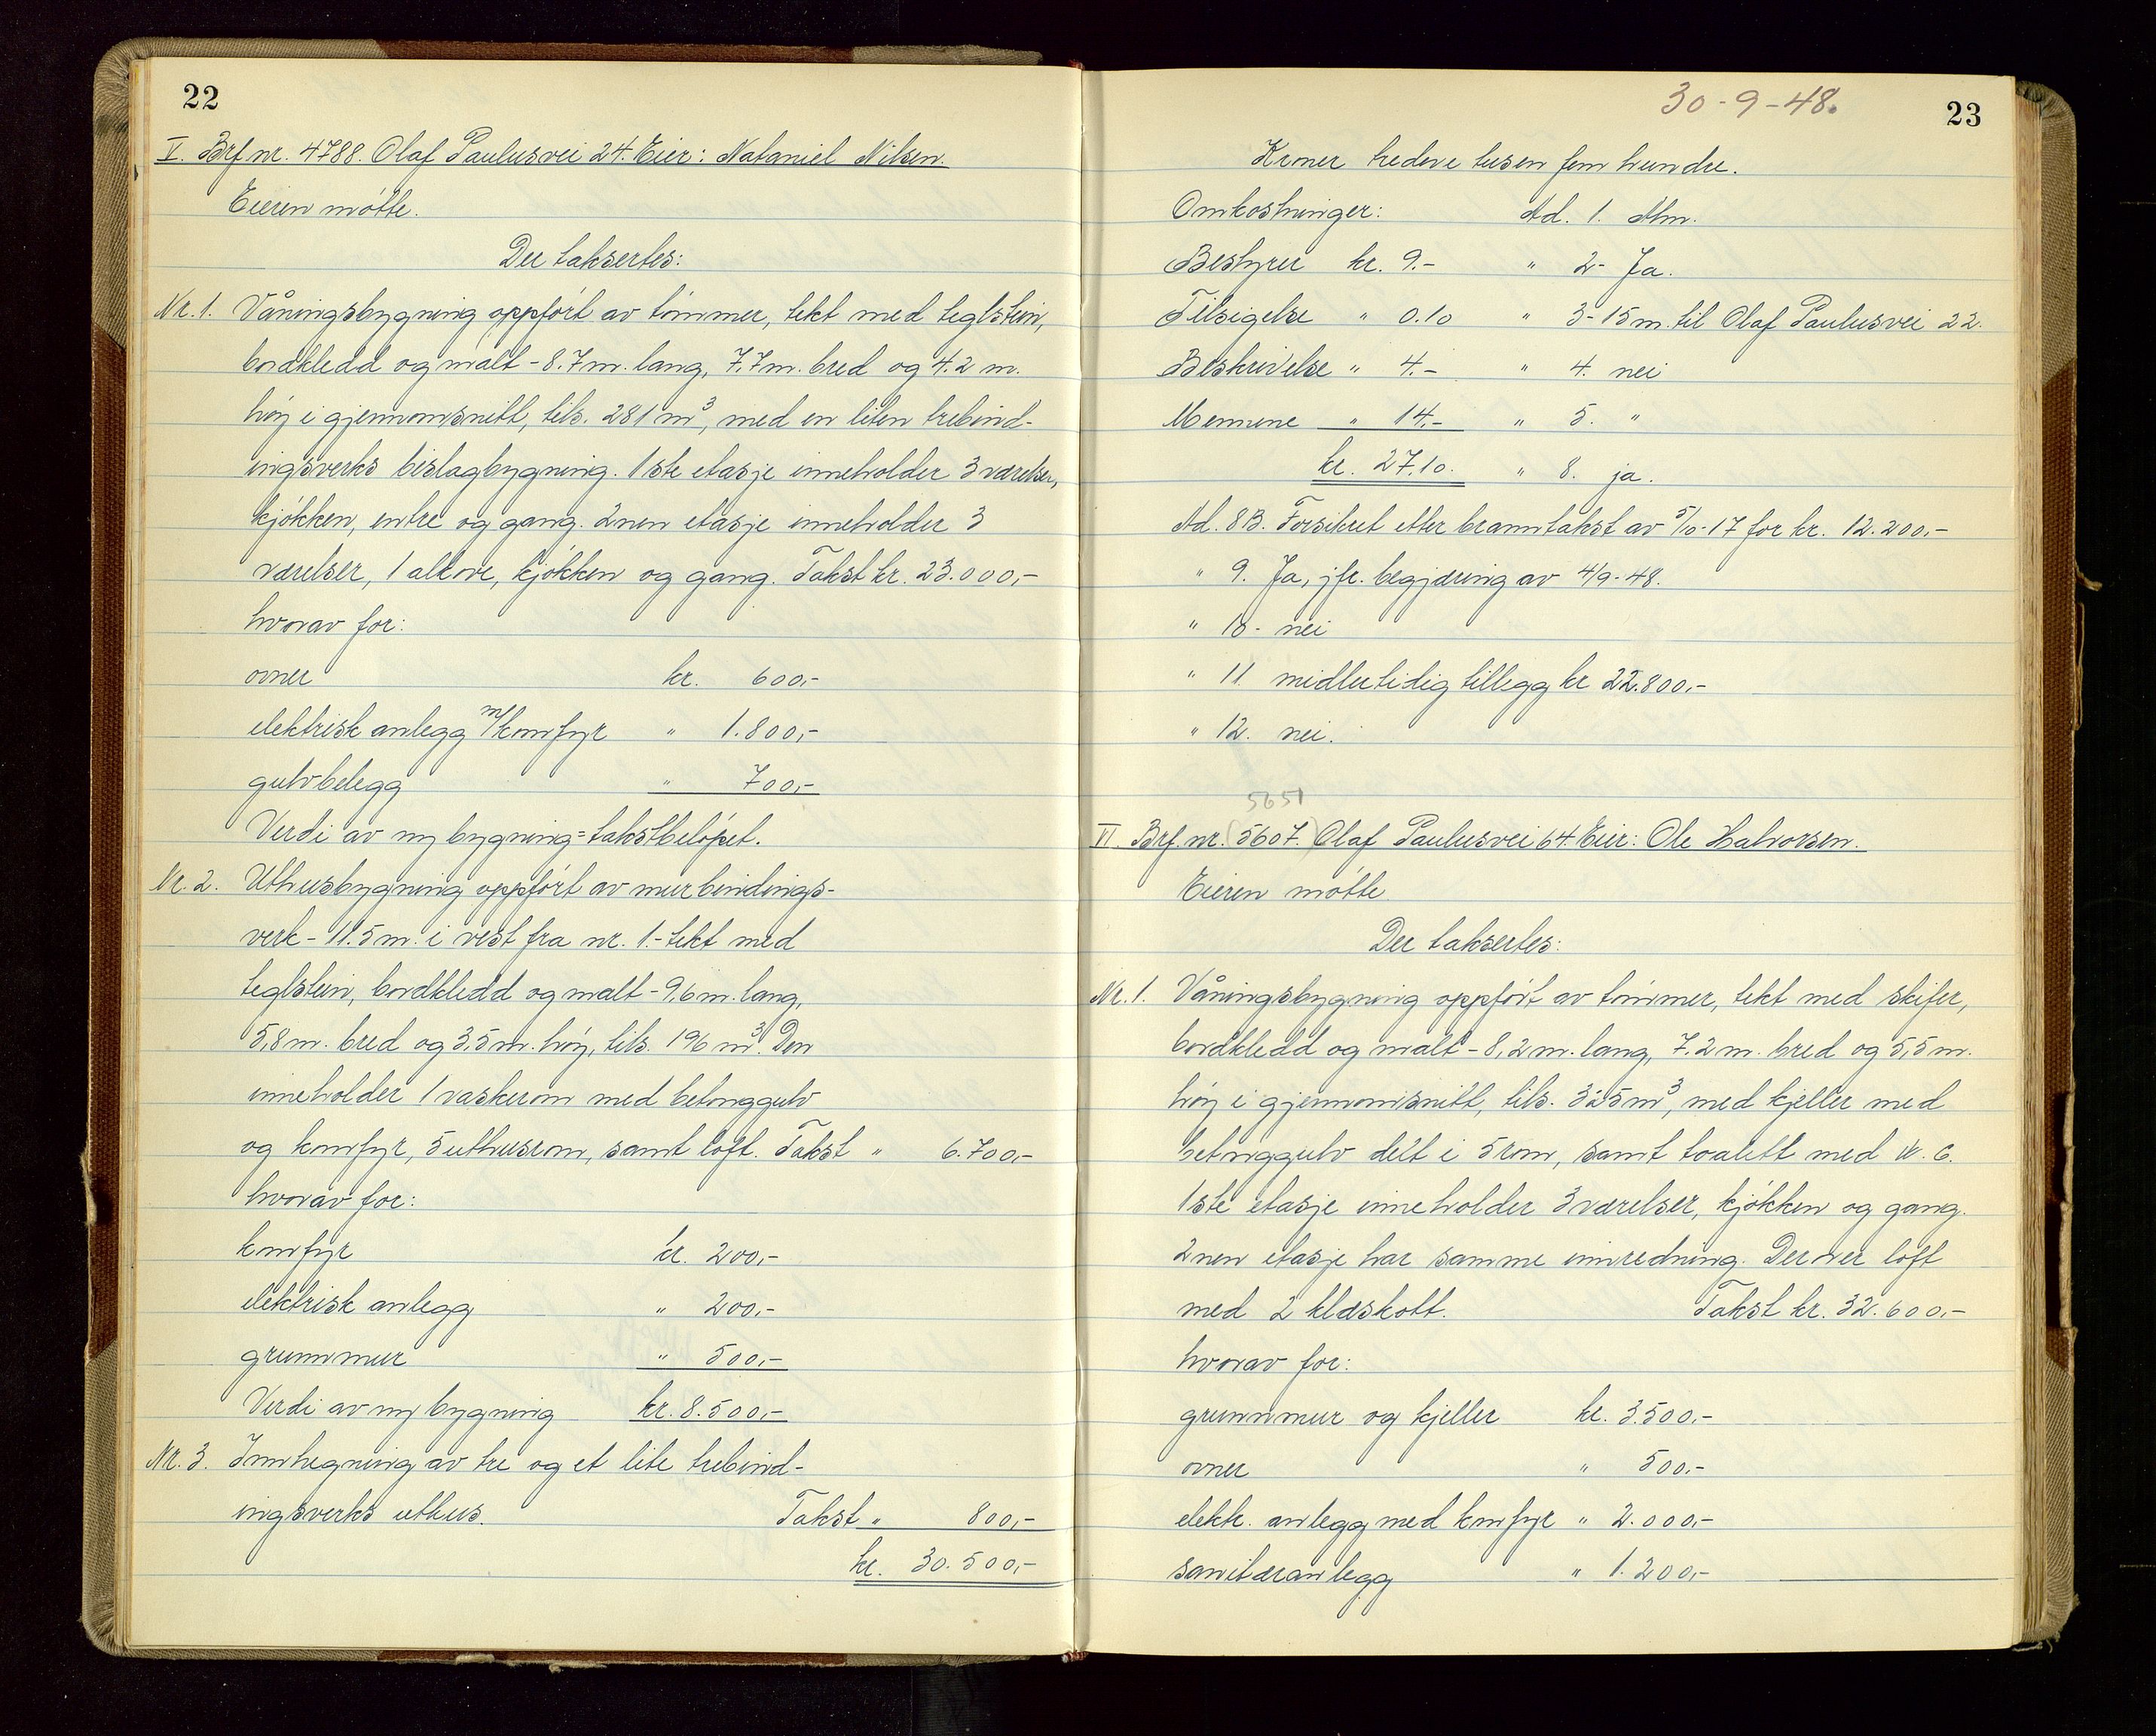 22
V. Brf nr. 4788. Olaf Paulusvei 24. Eier: Nataniel Nilsen.
Eieren møtte.
Der taksertes:
Nr. 1. Våningsbygning oppført av tømmer, tekt med teglstein,
bordkledd og malt - 8.7 m. lang, 7.7 m. bred og 4.2 m.
høy i gjennomsnitt, tils. 281 m³, med en liten trebind-
ingsverks bislagbygning. 1ste etasje inneholder 3 værelser,
kjøkken, entre og gang. 2nen etasje inneholder 3
værelser, 1 alkove, kjøkken og gang. Takst kr. 23.000,-
hvorav for:
ovner kr. 600,-
elektrisk anlegg m/komfyr " 1.800,-
gulvbelegg " 700,-
Verdi av ny bygning = takstbeløpet.
Nr. 2. Uthusbygning oppført av murbindings-
verk - 11.5 m. i vest fra nr. 1. - tekt med
teglstein, bordkledd og malt - 9,6 m. lang,
5,8 m. bred og 3,5 m. høy, tils. 196 m³. Den
inneholder 1 vaskerom med betonggulv
og komfyr, 5 uthusrom, samt loft. Takst " 6.700,-
hvorav for:
komfyr kr. 200,-
elektrisk anlegg " 200,-
grunnmur " 500,-
Verdi av ny bygning kr. 8.500,-
Nr. 3. Innhegning av tre og et lite trebind-
ingsverks uthus. Takst " 800,-
kr. 30.500,-
30-9-48.
23
Kroner tredeve tusen fem hundre.
Omkostninger: Ad. 1. Alm.
Bestyrer kr. 9.- " 2- Ja.
Tilsigelse " 0.10 " 3- 15 m. til Olaf Paulusvei 22.
Beskrivelse " 4.- " 4. nei
Mennene " 14.- " 5. "
kr. 27.10. " 8. ja.
Ad. 8B. Forsikret etter branntakst av 5/10-17 for kr. 12.200,-
" 9. Ja, jfr. begjæring av 4/9-48.
" 10- nei
" 11 midlertidig tillegg kr 22.800,-
" 12. nei.
5651
VI. Brf. nr. (5607.) Olaf Paulusvei 64. Eier: Ole Halvorsen.
Eieren møtte.
Der taksertes:
Nr. 1. Våningsbygning oppført av tømmer, tekt med skifer,
bordkledd og malt - 8,2 m. lang, 7.2 m. bred og 5,5 m.
høy i gjennomsnitt, tils. 325 m³, med kjeller med
betonggulv delt i 5 rom, samt toalett med W.C.
1ste etasje inneholder 3 værelser, kjøkken og gang.
2nen etasje har samme innredning. Derover loft
med 2 klæskott. Takst kr. 32.600,-
hvorav for:
grunnmur og kjeller kr. 3.500,-
ovner " 500.-
elektr. anlegg med komfyr " 2.000,-
sanitæranlegg " 1.200,-